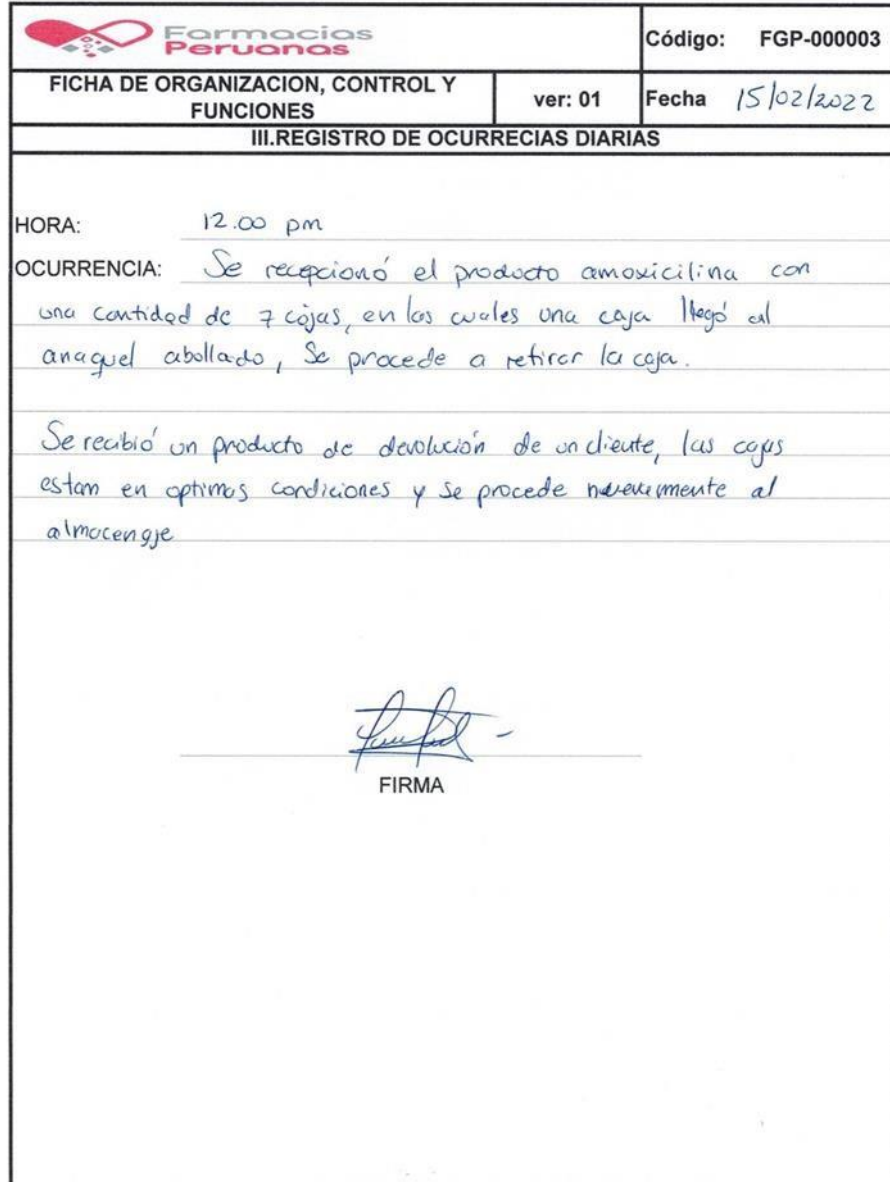 Farmacias
Peruanas
Código: FGP-000003
FICHA DE ORGANIZACION, CONTROL Y
FUNCIONES
ver: 01
Fecha 15/02/2022
III.REGISTRO DE OCURRECIAS DIARIAS
HORA: 12.00 pm
OCURRENCIA: Se recepcionó el producto amoxicilina con
una cantidad de 7 cajas, en las cuales una caja llegó al
anaquel abollado, Se procede a retirar la caja.
Se recibió un producto de devolución de un cliente, las cajas
estam en optimas condiciones y se procede nuevamente al
almacenaje
FIRMA